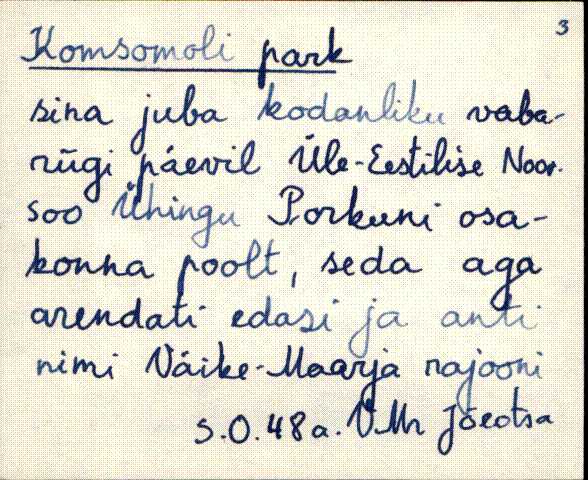 3
Komsomoli park
sina juba kodanliku vaba-
riigi päevil Üle-Eestilise Noor-
soo Ühingu Porkuni osa-
konna poolt, seda aga
arendati edasi ja anti
nimi Väike-Maarja rajooni
S.O.48a. V.Mr Jõeotsa